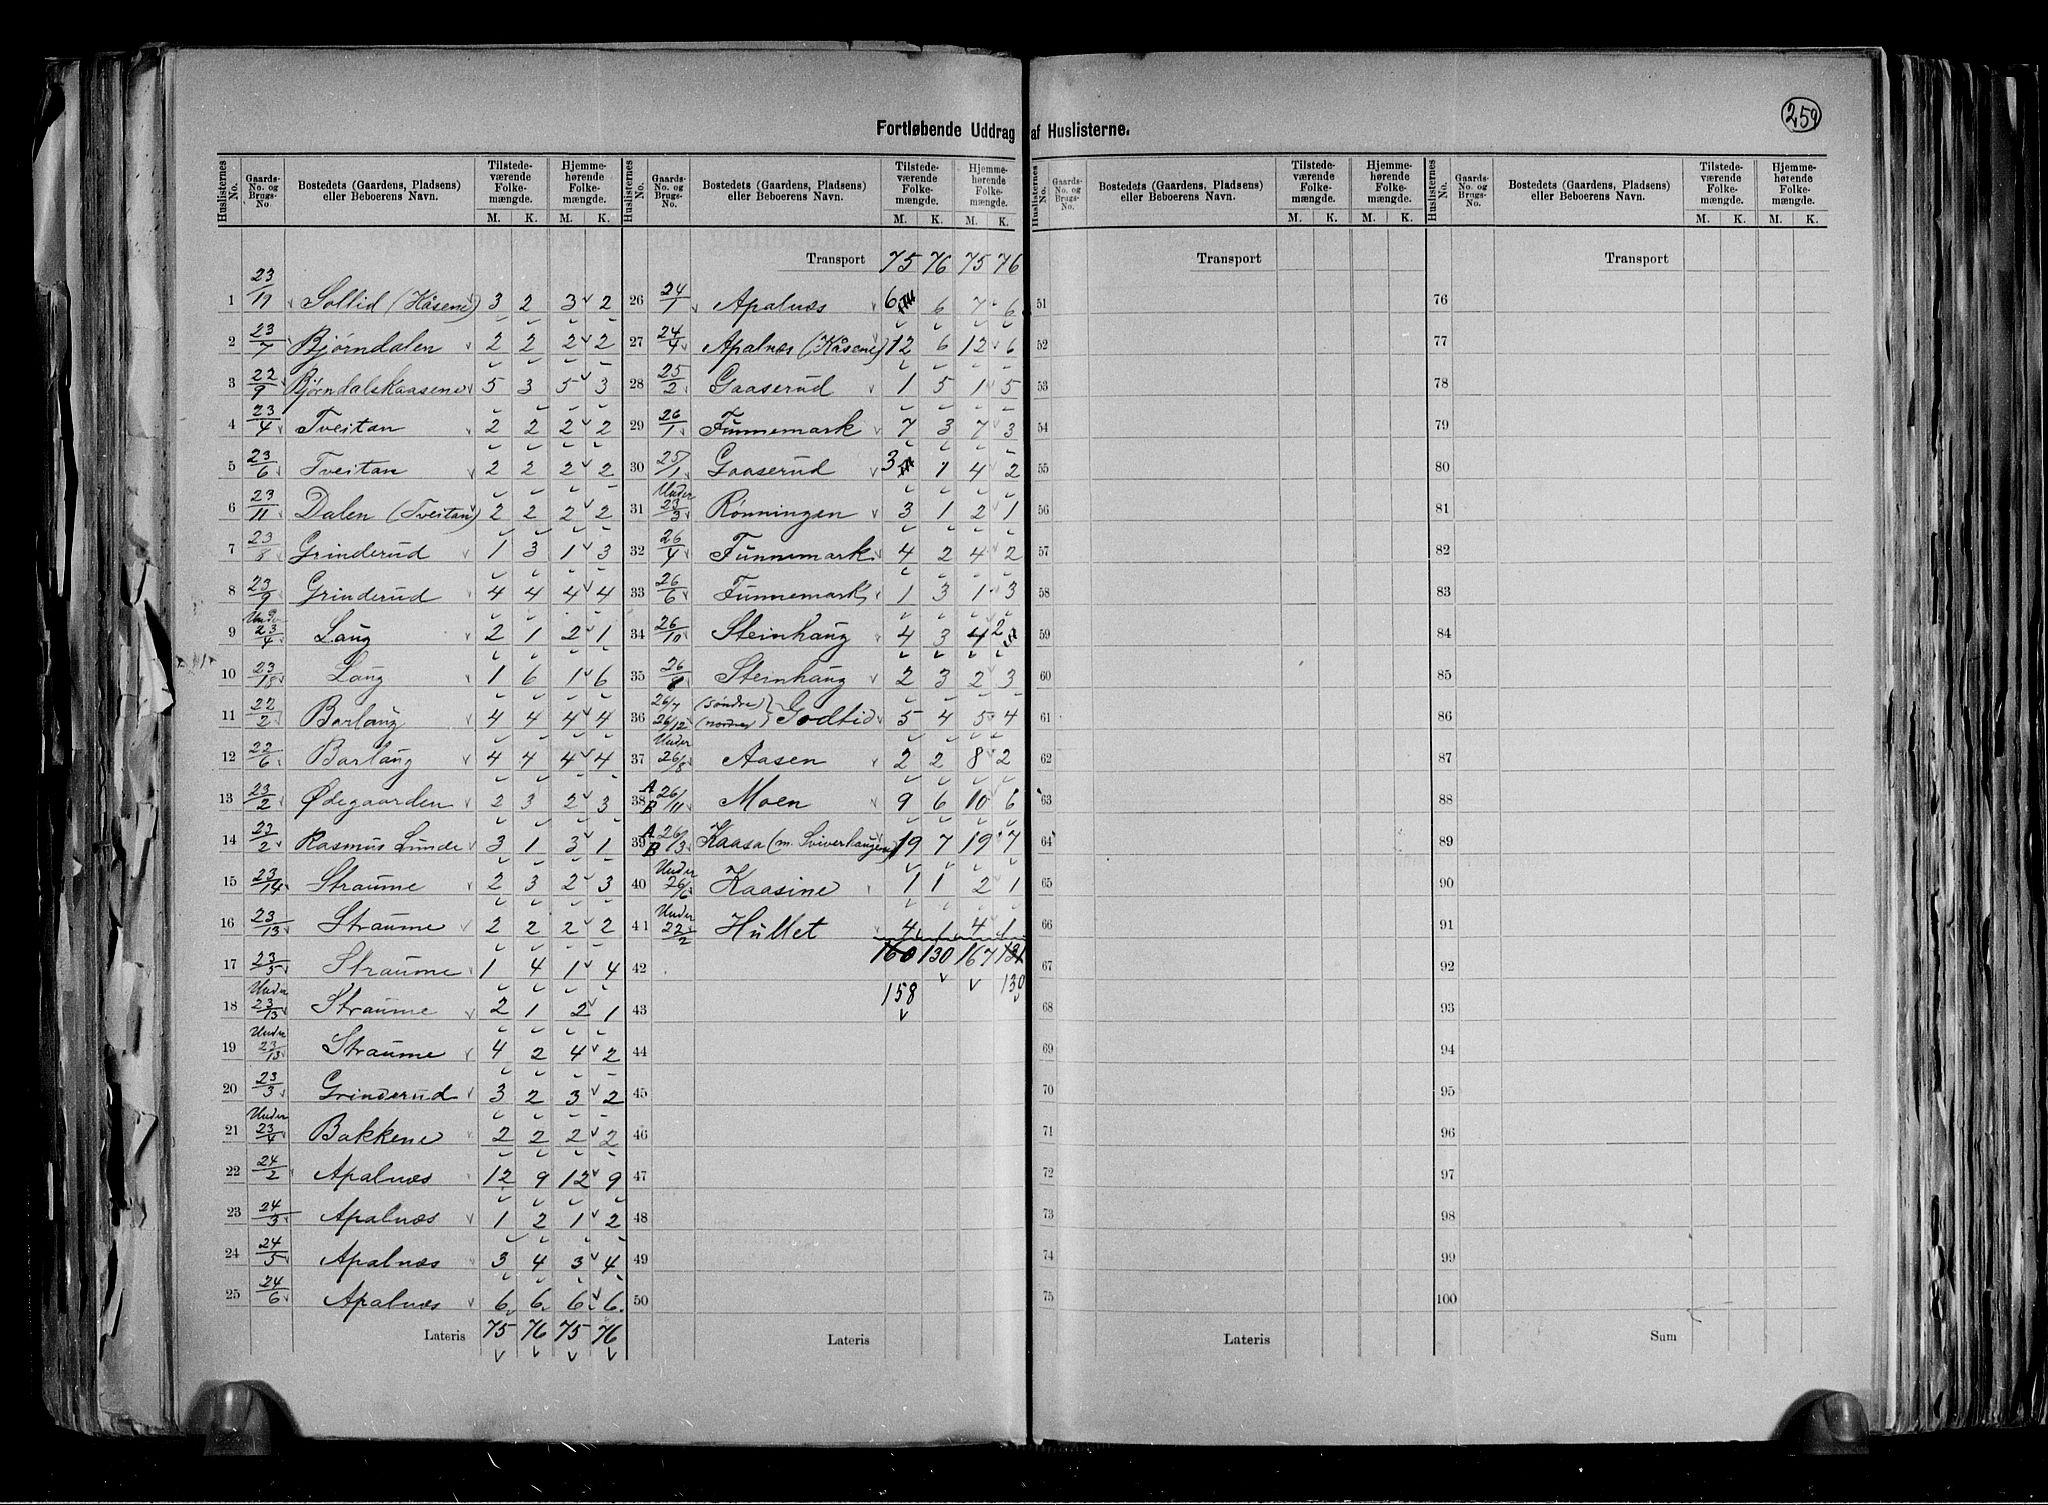 259
Fortløbende Uddrag af Huslisterne.
Huslisternes No. | Gaards-No. og Brugs-No. | Bostedets (Gaardens, Pladsens) eller Beboerens Navn. | Tilstedeværende Folkemængde. M. K. | Hjemmehørende Folkemængde. M. K.
1 23/19 Sollid (Kåsene) 3 2 3 2
2 23/7 Bjørndalen 2 2 2 2
3 22/9 Bjørndalskaasene 5 3 5 3
4 23/4 Tveitan 2 2 2 2
5 23/6 Tveitan 2 2 2 2
6 23/11 Dalen (Tveitan) 2 2 2 2
7 23/8 Grinderud 1 3 1 3
8 23/9 Grinderud 4 4 4 4
9 Under 23/4 Laug 2 1 2 1
10 23/18 Laug 1 6 1 6
11 22/2 Borlaug 4 4 4 4
12 22/6 Borlaug 4 4 4 4
13 23/2 Ødegaarden 2 3 2 3
14 23/2 Rasmus Lunde 3 1 3 1
15 23/14 Straume 2 3 2 3
16 23/13 Straume 2 2 2 2
17 23/5 Straume 1 4 1 4
18 Under 23/13 Straume 2 1 2 1
19 Under 23/13 Straume 4 2 4 2
20 23/3 Grinderud 3 2 3 2
21 Under 23/4 Bakkene 2 2 2 2
22 24/2 Apalnæs 12 9 12 9
23 24/3 Apalnæs 1 2 1 2
24 24/5 Apalnæs 3 4 3 4
25 24/6 Apalnæs 6 6 6 6
Lateris 75 76 75 76
Huslisternes No. | Gaards-No. og Brugs-No. | Bostedets (Gaardens, Pladsens) eller Beboerens Navn. | Tilstedeværende Folkemængde. M. K. | Hjemmehørende Folkemængde. M. K.
Transport 75 76 75 76
26 24/1 Apalnæs 6 6 7 6
27 24/4 Apalnæs (Kåsene) 12 6 12 6
28 25/2 Gaaserud 1 5 1 5
29 26/1 Funnemark 7 3 7 3
30 25/1 Gaaserud 3 1 4 2
31 Under 23/3 Rønningen 3 1 2 1
32 26/4 Funnemark 4 2 4 2
33 26/6 Funnemark 1 3 1 3
34 26/10 Steinhaug 4 3 4 2
35 26/8 Steinhaug 2 3 2 3
36 26/7 26/12 (søndre) (nordre) Godtid 5 4 5 4
37 Under 26/8 Aasen 2 2 8 2
38 A B 26/11 Moen 9 6 10 6
39 A B 26/3 Kaasa (m. Sviverhaugene) 19 7 19 7
40 Under 26/6 Kaasine 1 1 2 1
41 Under 22/2 Hullet 4 1 4 1
42 160 130 167 131
43 158 130
44
45
46
47
48
49
50
Lateris
Huslisternes No. | Gaards-No. og Brugs-No. | Bostedets (Gaardens, Pladsens) eller Beboerens Navn. | Tilstedeværende Folkemængde. M. K. | Hjemmehørende Folkemængde. M. K.
Transport
51
52
53
54
55
56
57
58
59
60
61
62
63
64
65
66
67
68
69
70
71
72
73
74
75
Lateris
Huslisternes No. | Gaards-No. og Brugs-No. | Bostedets (Gaardens, Pladsens) eller Beboerens Navn. | Tilstedeværende Folkemængde. M. K. | Hjemmehørende Folkemængde. M. K.
Transport
76
77
78
79
80
81
82
83
84
85
86
87
88
89
90
91
92
93
94
95
96
97
98
99
100
Sum